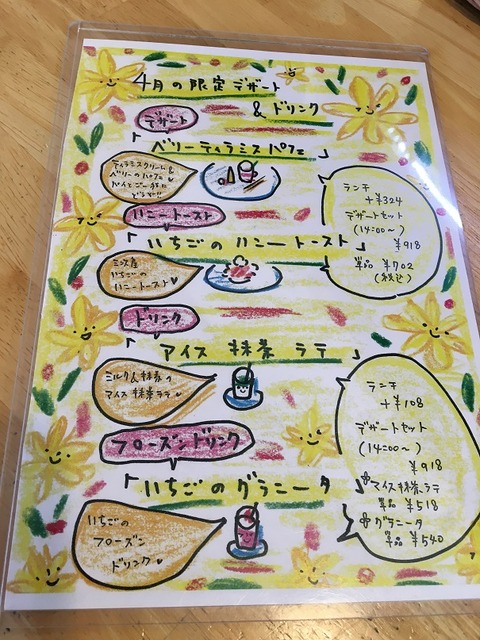 4月の限定デザート
&ドリンク
デザート
「ベリーティラミスパフェ」
ティラミスクリーム&
ベリーのパフェ
パイとご一緒に
どうぞ!!
ランチ
+¥324
デザートセット
(14:00〜)
¥918
単品 ¥702
(税込)
ハニートースト
「いちごのハニートースト」
いちごの
ハニートースト♥
ドリンク
「アイス 抹茶 ラテ」
ミルク&抹茶の
アイス抹茶ラテ♥
ランチ
+¥108
デザートセット
(14:00〜)
¥918
アイス抹茶ラテ
単品 ¥518
グラニータ
単品 ¥540
フローズンドリンク
「いちごのグラニータ」
いちごの
フローズン
ドリンク♥